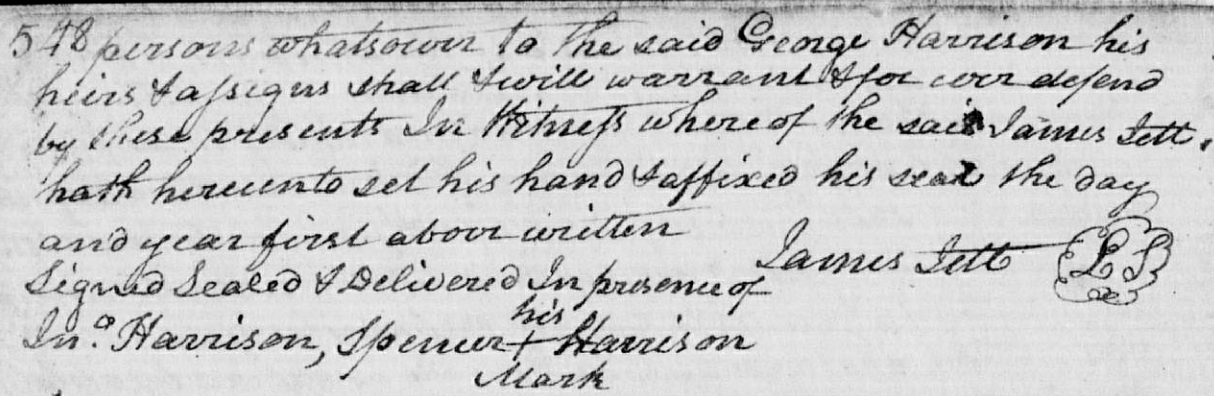 548 persons whatsoever to the said George Harrison his
heirs & assigns shall & will warrant & for ever defend
by these presents In Witness where of the said James Tett.
hath hereunto set his hand & affixed his seal the day
and year first above written
James Tett L S
Signed Sealed & Delivered In presence of
Jno. Harrison, Spencer + Harrison
his
Mark